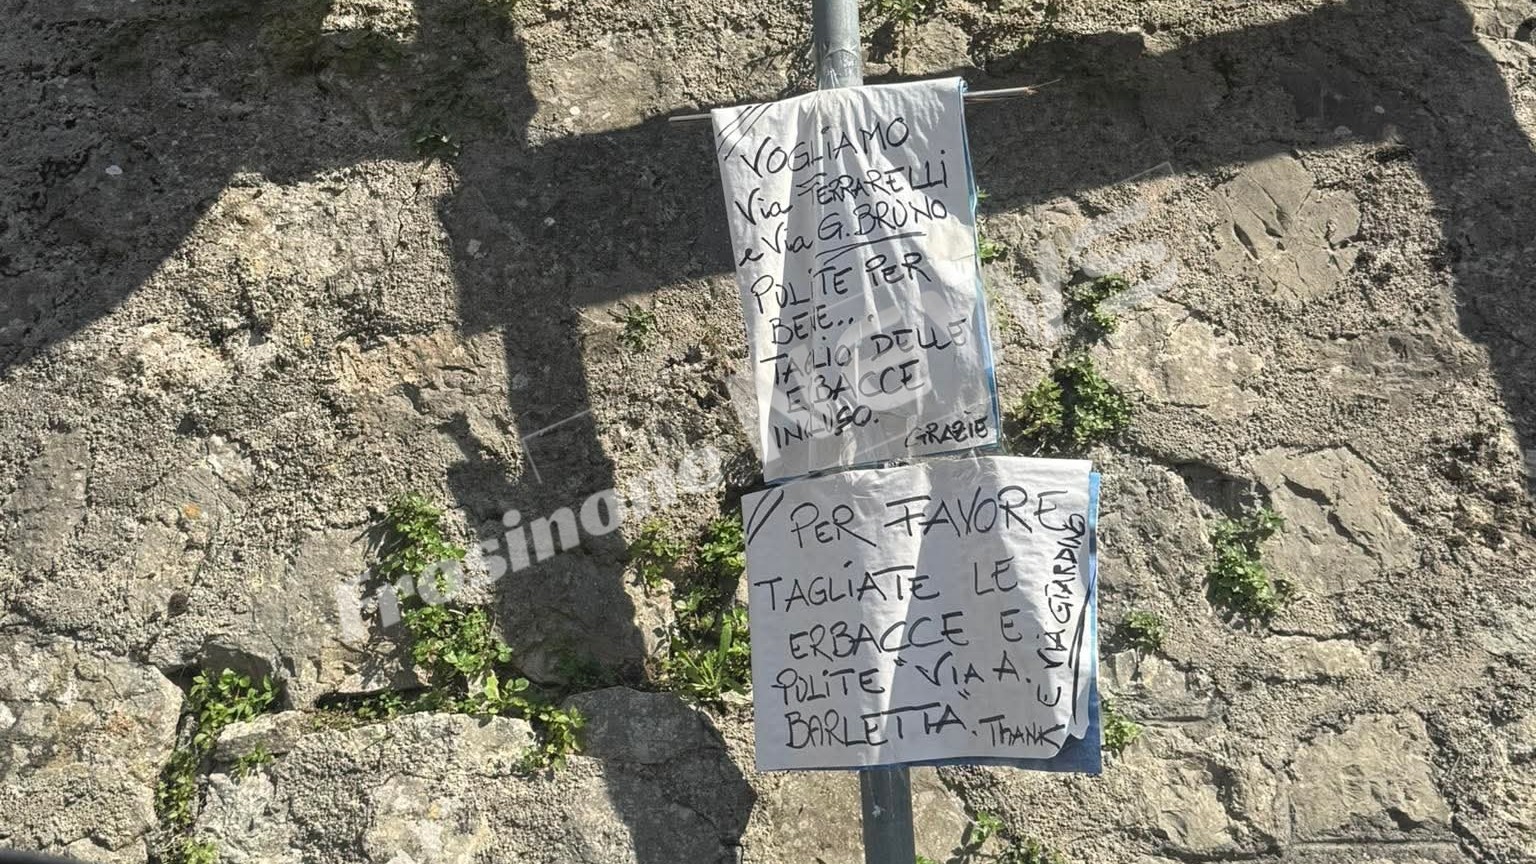 VOGLIAMO
Via FERRARELLI
e Via G. BRUNO
PULITE PER
BENE...
TAGLIO DELLE
EBACCE
INCLUSO.
GRAZIE
PER FAVORE
TAGLIATE LE
ERBACCE E.
PULITE "VIA A.
BARLETTA". THANK
E VIA GIARDINO
frosinone NEWS